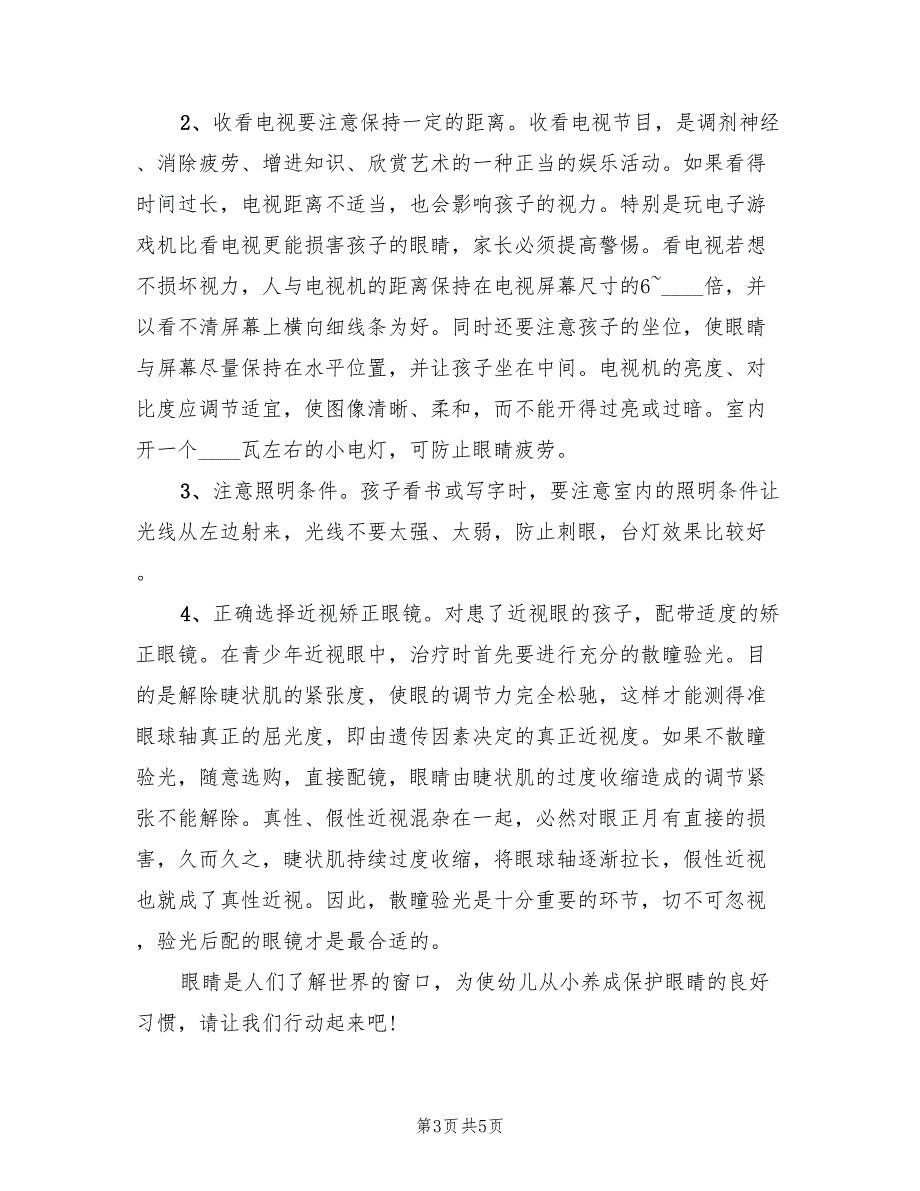 2、收看电视要注意保持一定的距离。收看电视节目，是调剂神经
、消除疲劳、增进知识、欣赏艺术的一种正当的娱乐活动。如果看得
时间过长，电视距离不适当，也会影响孩子的视力。特别是玩电子游
戏机比看电视更能损害孩子的眼睛，家长必须提高警惕。看电视若想
不损坏视力，人与电视机的距离保持在电视屏幕尺寸的6~____倍，并
以看不清屏幕上横向细线条为好。同时还要注意孩子的坐位，使眼睛
与屏幕尽量保持在水平位置，并让孩子坐在中间。电视机的亮度、对
比度应调节适宜，使图像清晰、柔和，而不能开得过亮或过暗。室内
开一个____瓦左右的小电灯，可防止眼睛疲劳。
3、注意照明条件。孩子看书或写字时，要注意室内的照明条件让
光线从左边射来，光线不要太强、太弱，防止刺眼，台灯效果比较好
。
4、正确选择近视矫正眼镜。对患了近视眼的孩子，配带适度的矫
正眼镜。在青少年近视眼中，治疗时首先要进行充分的散瞳验光。目
的是解除睫状肌的紧张度，使眼的调节力完全松驰，这样才能测得准
眼球轴真正的屈光度，即由遗传因素决定的真正近视度。如果不散瞳
验光，随意选购，直接配镜，眼睛由睫状肌的过度收缩造成的调节紧
张不能解除。真性、假性近视混杂在一起，必然对眼正月有直接的损
害，久而久之，睫状肌持续过度收缩，将眼球轴逐渐拉长，假性近视
也就成了真性近视。因此，散瞳验光是十分重要的环节，切不可忽视
，验光后配的眼镜才是最合适的。
眼睛是人们了解世界的窗口，为使幼儿从小养成保护眼睛的良好
习惯，请让我们行动起来吧!
第3页共5页